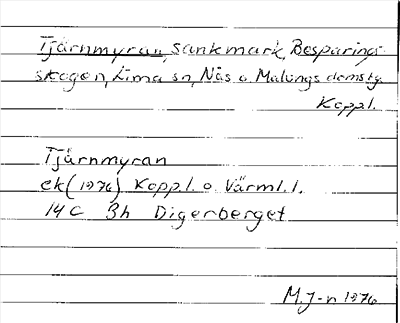 Tjärnmyran, sankmark, Besparings-
skogen, Lima sn, Nås o. Malungs domstg.
Koppl.
Tjärnmyran
ek (1976) Koppl. o Värml. l.
14 C 3h Digerberget
M. J-n 1976